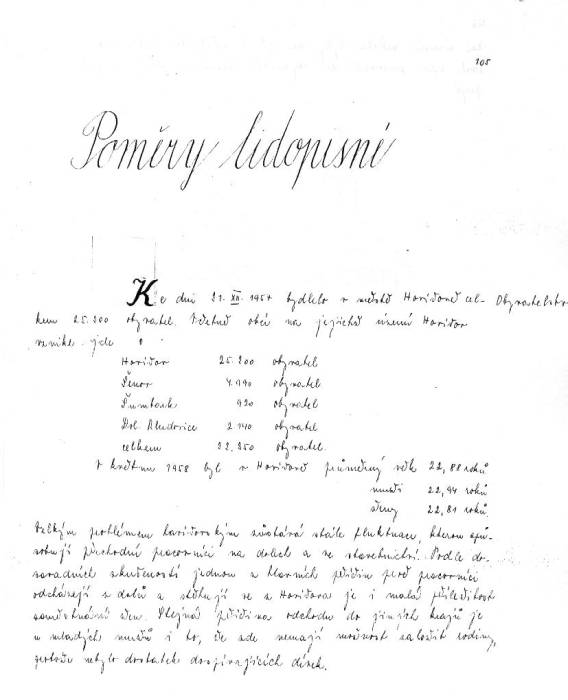 105
Poměry lidopisné
Ke dni 31. XII. 1957 bydlelo v městě Havířově cel- Obyvatelstvo
kem 25.200 obyvatel. Včetně obcí na jejichž území Havířov
vznikl jde
Havířov 25.200 obyvatel
Šenov 4.190 obyvatel
Šumbark 920 obyvatel
Dol. Bludovice 2.140 obyvatel
celkem 32.350 obyvatel.
V květnu 1958 byl v Havířově průměrný věk 22,88 roků
muži 22,94 roků
ženy 22,81 roků
Velkým problémem havířovským zůstává stále fluktuace, kterou způ-
sobují přechodní pracovníci na dolech a ve stavebnictví. Podle do-
savadních zkušeností jednou z hlavních příčin proč pracovníci
odcházejí z dolů a stěhují se z Havířova je i malá příležitost
zaměstnání žen. Stejná příčina odchodu do jiných krajů je
u mladých mužů i to, že zde nemají možnost založit rodiny,
protože nebylo dostatek dospívajících dívek.